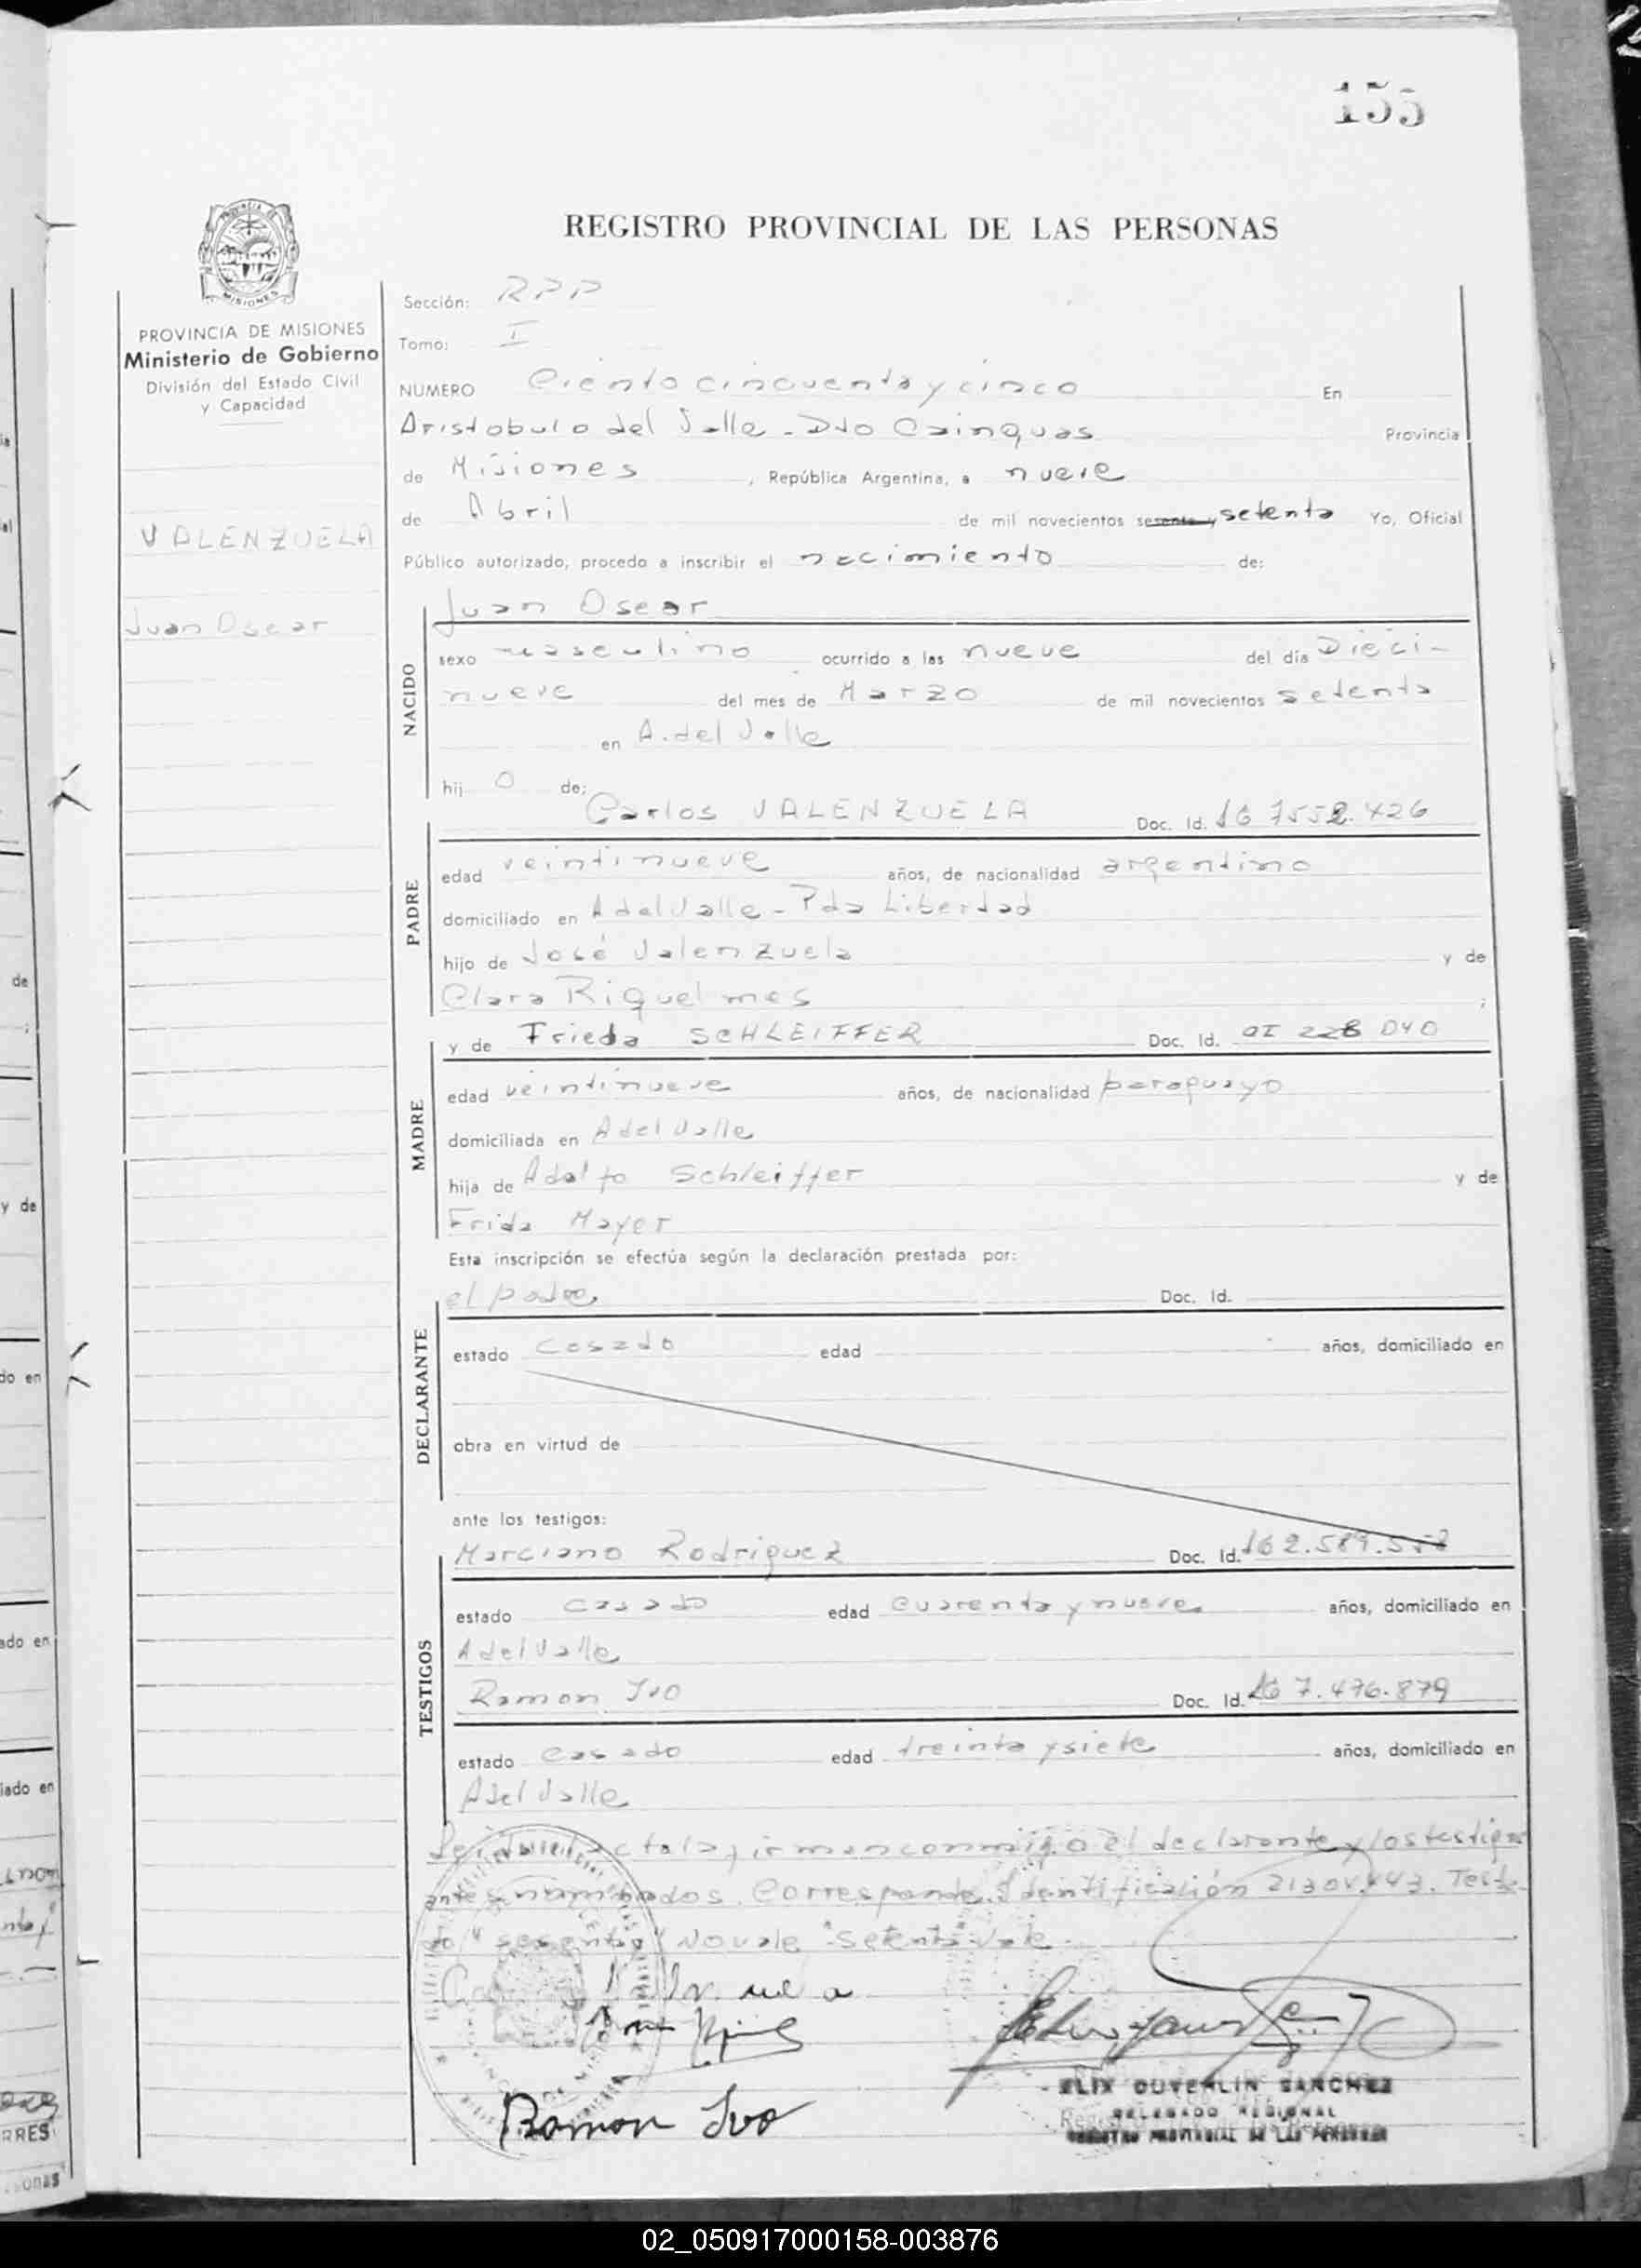 155
REGISTRO PROVINCIAL DE LAS PERSONAS
PROVINCIA DE MISIONES
Ministerio de Gobierno
División del Estado Civil
y Capacidad
VALENZUELA
Juan Oscar
Sección: RPP
Tomo: I
NUMERO Ciento cincuenta y cinco En
Aristobulo del Valle - Dto Cainguas Provincia
de Misiones, República Argentina, a nueve
de Abril de mil novecientos sesenta y setenta Yo, Oficial
Público autorizado, procedo a inscribir el nacimiento de:
Juan Oscar
NACIDO
sexo masculino ocurrido a las nueve del día Dieci-
nueve del mes de Marzo de mil novecientos setenta
en A. del Valle
hij o de:
Carlos VALENZUELA Doc. Id. 7552.426
PADRE
edad veintinueve años, de nacionalidad argentino
domiciliado en A del Valle - Pda Libertad
hijo de José Valenzuela y de
Clara Riquelmes ;
y de Frieda SCHLEIFFER Doc. Id. CI 228 040
MADRE
edad veintinueve años, de nacionalidad paraguayo
domiciliada en A del Valle
hija de Adolfo Schleiffer y de
Frida Mayer
Esta inscripción se efectúa según la declaración prestada por:
el padre Doc. Id.
DECLARANTE
estado casado edad años, domiciliado en
obra en virtud de
ante los testigos:
Marciano Rodriguez Doc. Id. 2.589.
TESTIGOS
estado casado edad cuarenta y nueve años, domiciliado en
A del Valle
Ramon Ivo Doc. Id. 7.476.879
estado casado edad treinta y siete años, domiciliado en
A del Valle
Leida el acta la firman conmigo el declarante y los testigos
antes nombrados. Corresponde Identificación 21304.443. Testa-
do "sesenta y" No vale "setenta" vale.
Ramon Ivo
ELIX DUVERLIN SANCHEZ
DELEGADO REGIONAL
REGISTRO PROVINCIAL DE LAS PERSONAS
02_050917000158-003876